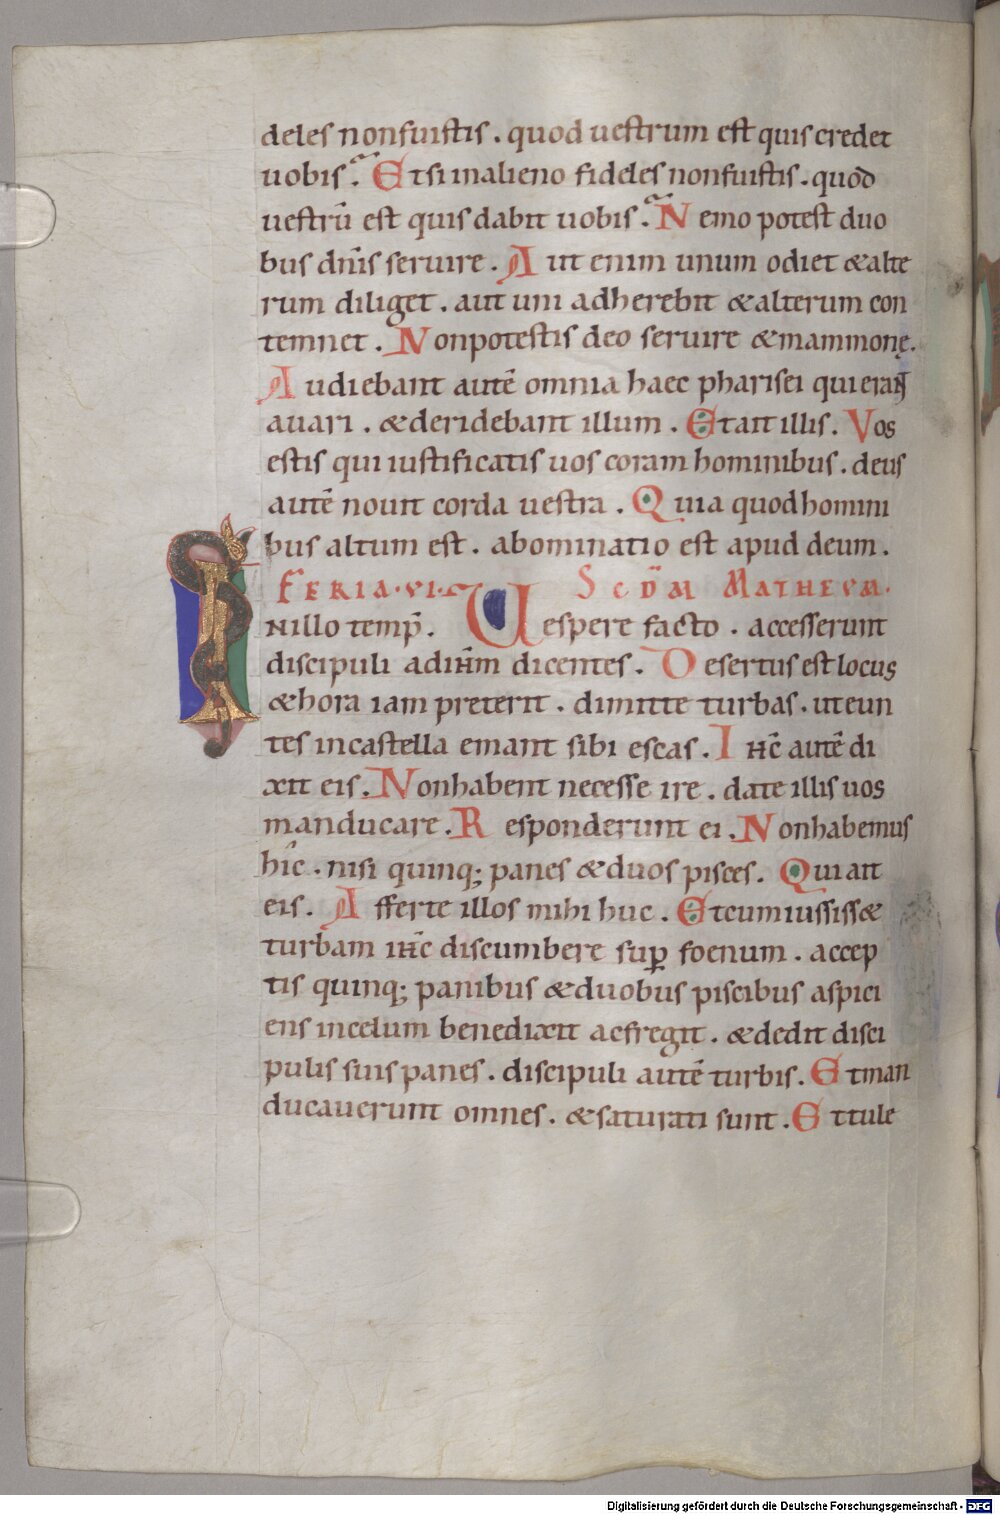 deles non fuistis . quod uestrum est quis credet
uobis . Et si in alieno fideles non fuistis . quod
uestrū est quis dabit uobis . Nemo potest duo
bus dn̄is seruire . Aut enim unum odiet & alte
rum diliget . aut uni adherebit & alterum con
temnet . Non potestis deo seruire & mammonę .
Audiebant autē omnia haec pharisei qui erant
auari . & deridebant illum . Et ait illis . Vos
estis qui iustificatis uos coram hominibus . deus
autē nouit corda uestra . Quia quod homini
bus altum est . abominatio est apud deum .
FERIA · VI · SCD̄M MATHEVM ·
IN illo temp̄ . Uespere facto . accesserunt
discipuli ad ih̄m dicentes . Desertus est locus
& hora iam preterit . dimitte turbas . ut eun
tes in castella emant sibi escas . Ihc̄ autē di
xit eis . Non habent necesse ire . date illis uos
manducare . Responderunt ei . Non habemus
hic . nisi quinq; panes & duos pisces . Qui ait
eis . Afferte illos mihi huc . Et cum iussiss&
turbam ihc̄ discumbere sup̄ foenum . accep
tis quinq; panibus & duobus piscibus aspici
ens in celum benedixit ac fregit . & dedit disci
pulis suis panes . discipuli autē turbis . Et man
ducauerunt omnes . & saturati sunt . Et tule
Digitalisierung gefördert durch die Deutsche Forschungsgemeinschaft - DFG